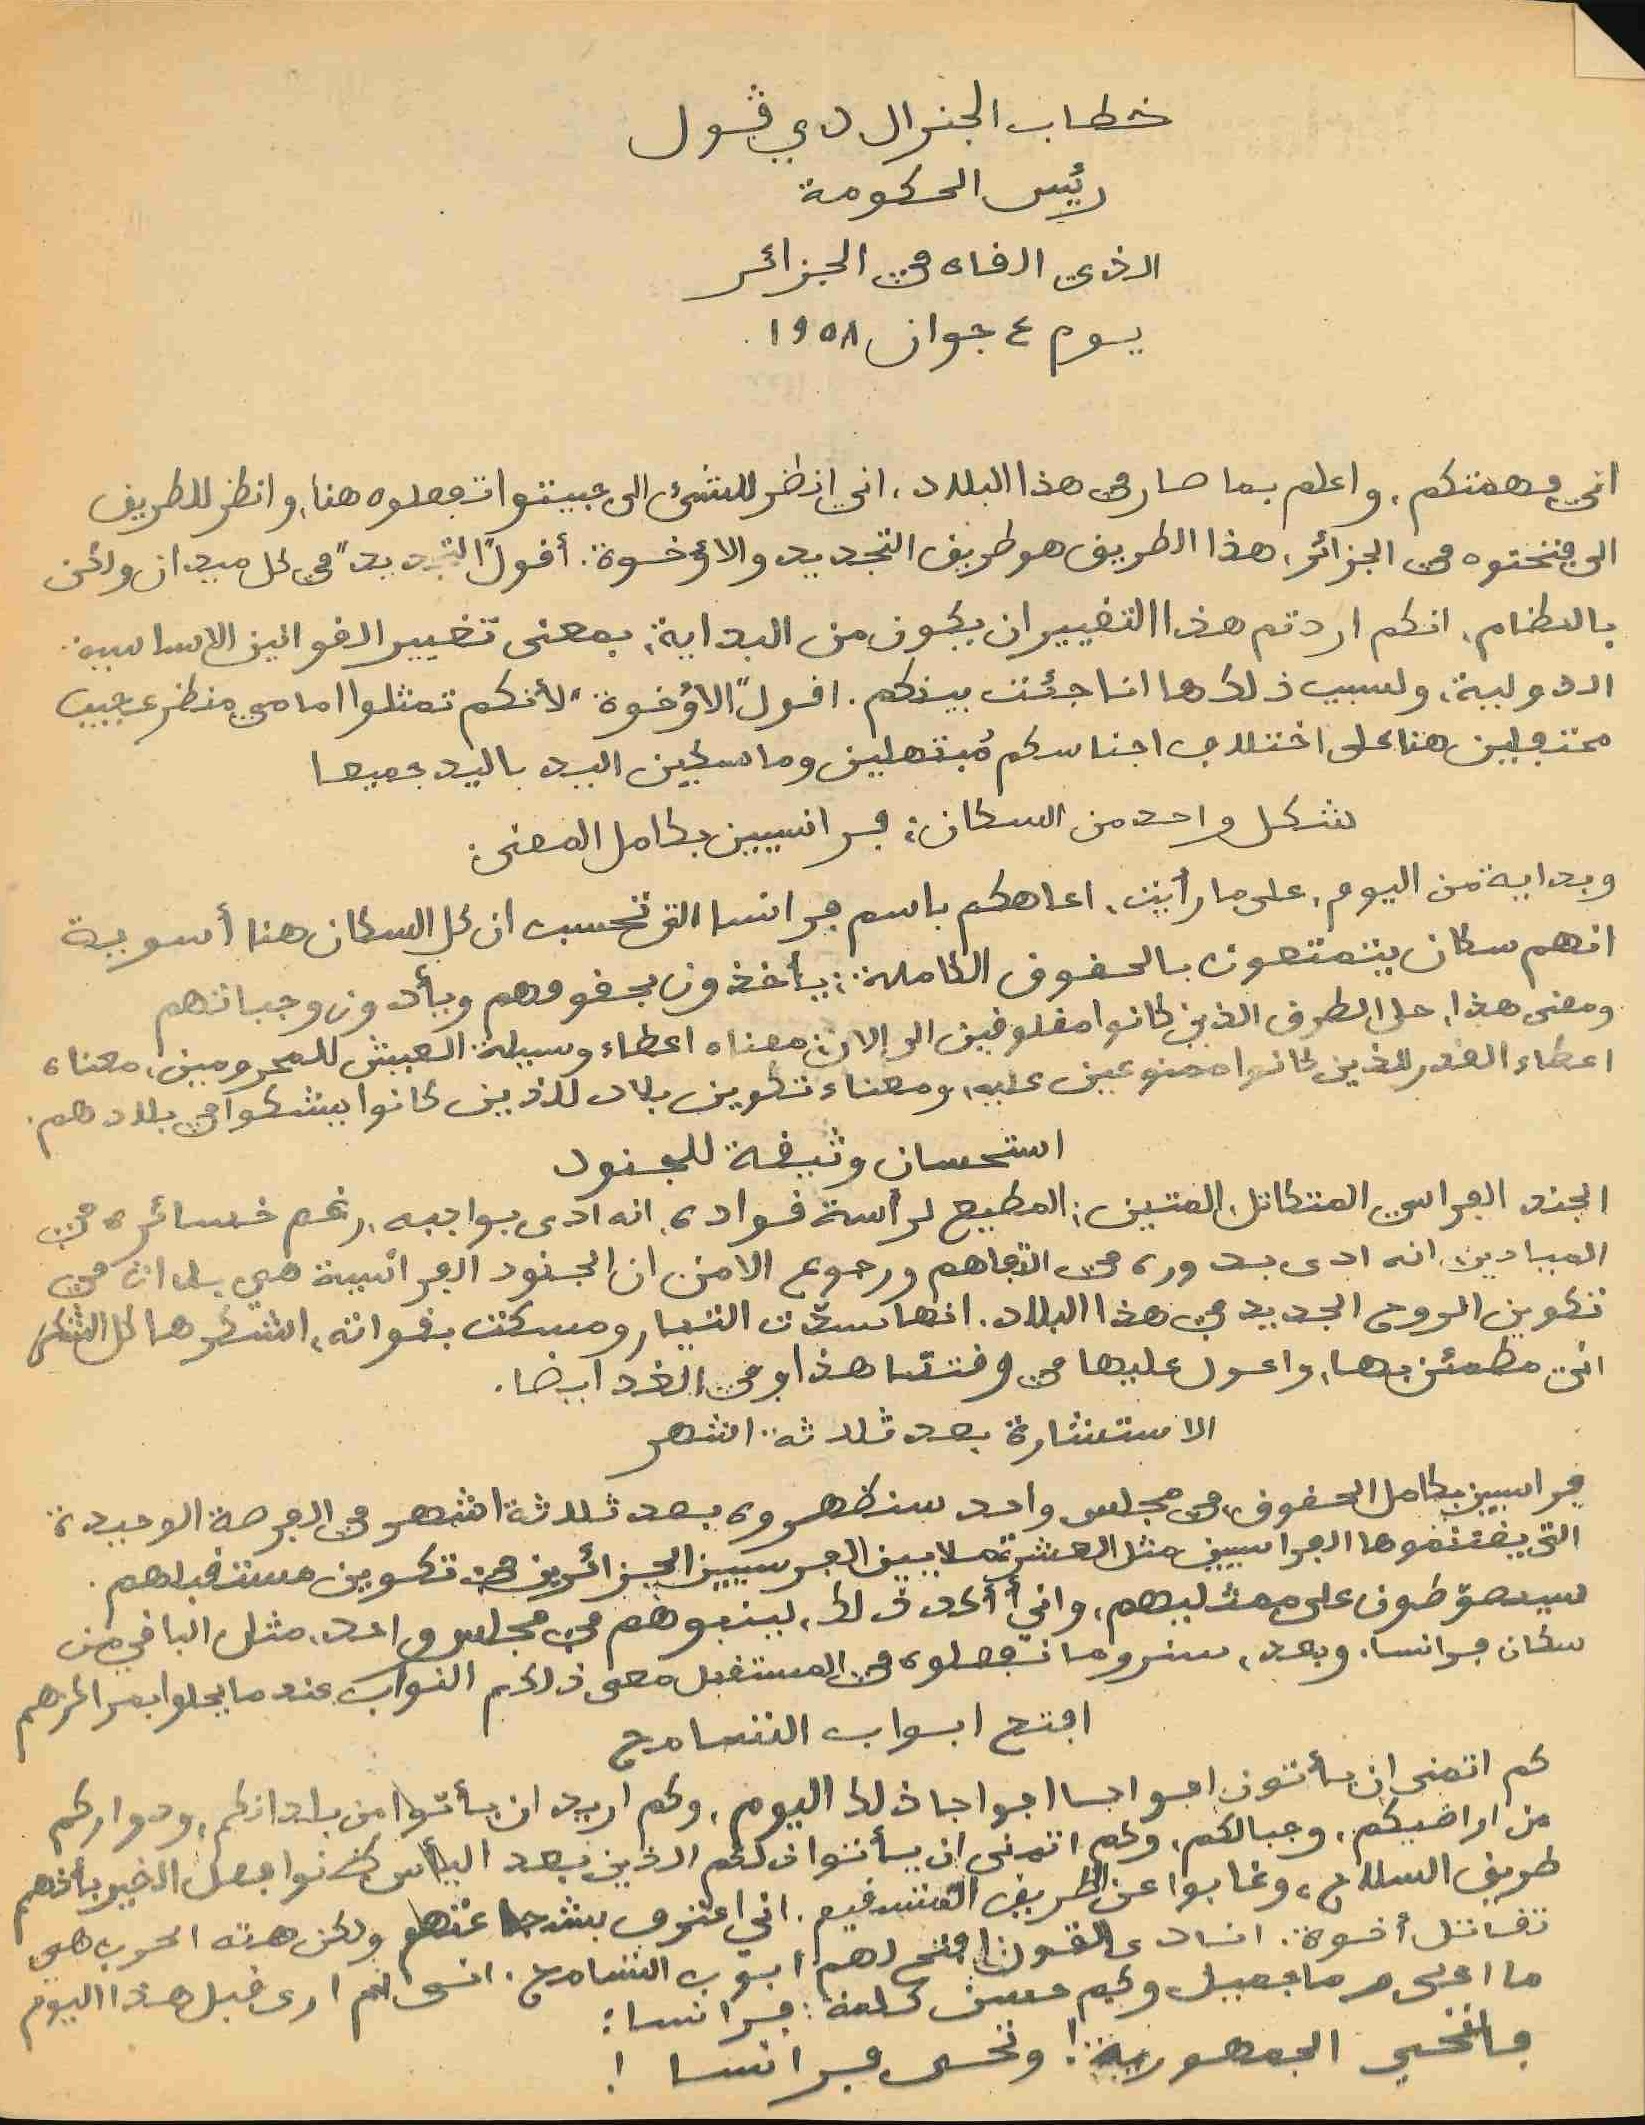 خطاب الجنرال دي ڤول
رئيس الحكومة
الذي القاه في الجزائر
يوم ٤ جوان ١٩٥٨
اني فهمتكم، واعلم بما صار في هذا البلاد، اني انظر للشئ الي حبيتوا تفعلوه هنا، وانظر للطريق
الي فتحتوه في الجزائر، هذا الطريق هو طريق التجديد والاؤخوة. أقول "التجديد" في كل ميدان ولكن
بالنظام، انكم اردتم هذا التغيير ان يكون من البداية، بمعنى تغيير القوانين الاساسية
الدولية، ولسبب ذلك ها انا جئت بينكم. اقول "الاؤخوة" لأنكم تمثلوا امامي منظر عجيب
محتفلين هنا على اختلاف اجناسكم مُبتهلين وماسكين اليد باليد جميعا
شكل واحد من السكان: فرانسيين بكامل المعنى:
وبداية من اليوم، على ما رأيت، اعاهكم باسم فرانسا التي تحسب ان كل السكان هنا أسوية
انهم سكان يتمتعون بالحقوق الكاملة: يأخذون بحقوقهم ويأدون وجباتهم
ومعنى هذا، حل الطرق الذين كانوا مغلوقين الى الان، معناه اعطاء وسيلة العيش للمحرومين، معناه
اعطاء القدر للذين كانوا ممنوعين عليه، ومعناه تكوين بلاد للذين كانوا يشكوا في بلادهم.
استحسان وثيقة للجنود
الجند الفراسي المتكاتل، المتين: المطيع لرأسة قواده، انه ادى بواجبه، رغم خسائره في
الميادين انه ادى بدوره في التفاهم ورجوع الامن ان الجنود الفرانسية هي بدات في
تكوين الروح الجديد في هذا البلاد. انها سدّت التيار ومسكت بقواته، اشكرها كل الشكر
اني مطمئن بها، واعول عليها في وقتنا هذا وفي الغد ايضا.
الاستشارة بعد ثلاثة اشهر
فراسيين بكامل الحقوق، في مجلس واحد سنظهروه بعد ثلاثة اشهر في الفرصة الوحيدة
التي يغتنموها الفراسيين مثل العشرة ملايين الفرسيين الجزائرين في تكوين مستقبلهم.
سيصوّطون على ممثليهم، واني أأكد ذلك، لينبوهم في مجلس واحد، مثل الباقي من
سكان فرانسا. وبعد، سنرو ما نفعلوه في المستقبل مع ذلكم النواب عندما يحلوا بمراكزهم
افتح ابواب التسامح
كم اتمنى ان يأتون افواجا افواجا ذلك اليوم، وكم اريد ان يأتوا من بلدانكم، ودواركم
من اراضيكم، وجبالكم، وكم اتمنى ان يأتوا ذلكم الذين بعد اليأس ظنوا فعل الخير بأنهم
طريق السلاح، وغابوا عن الطريق المستقيم. اني اعترف بشجاعتهم ولكن هته الحرب هي
تقاتل أخوة. انا دى القون افتح لهم أبوب التسامح. انى لم ارى قبل هذا اليوم
ما اعلى وما جميل وكم حسن كلمة: فرانسا:
فالتحي الجمهورية! وتحي فرانسا!